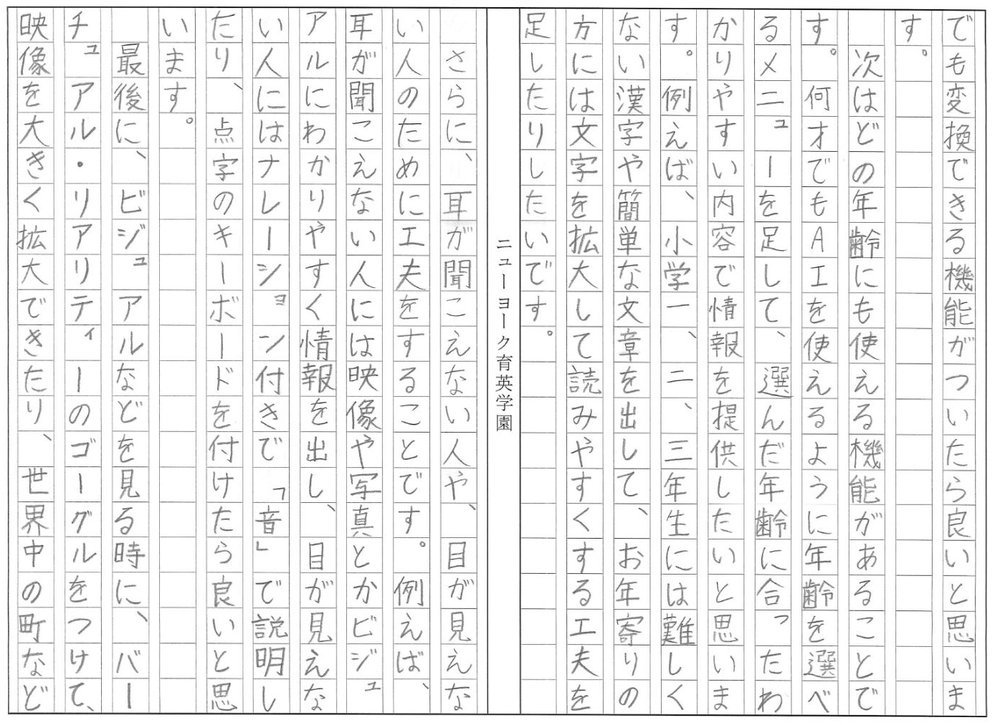 でも変換できる機能がついたら良いと思いま
す。
次はどの年齢にも使える機能があることで
す。何才でもAIを使えるように年齢を選べ
るメニューを足して、選んだ年齢に合ったわ
かりやすい内容で情報を提供したいと思いま
す。例えば、小学一、二、三年生には難しく
ない漢字や簡単な文章を出して、お年寄りの
方には文字を拡大して読みやすくする工夫を
足したりしたいです。
ニューヨーク育英学園
さらに、耳が聞こえない人や、目が見えな
い人のために工夫をすることです。例えば、
耳が聞こえない人には映像や写真とかビジュ
アルにわかりやすく情報を出し、目が見えな
い人にはナレーション付きで「音」で説明し
たり、点字のキーボードを付けたら良いと思
います。
最後に、ビジュアルなどを見る時に、バー
チュアル・リアリティーのゴーグルをつけて、
映像を大きく拡大できたり、世界中の町など